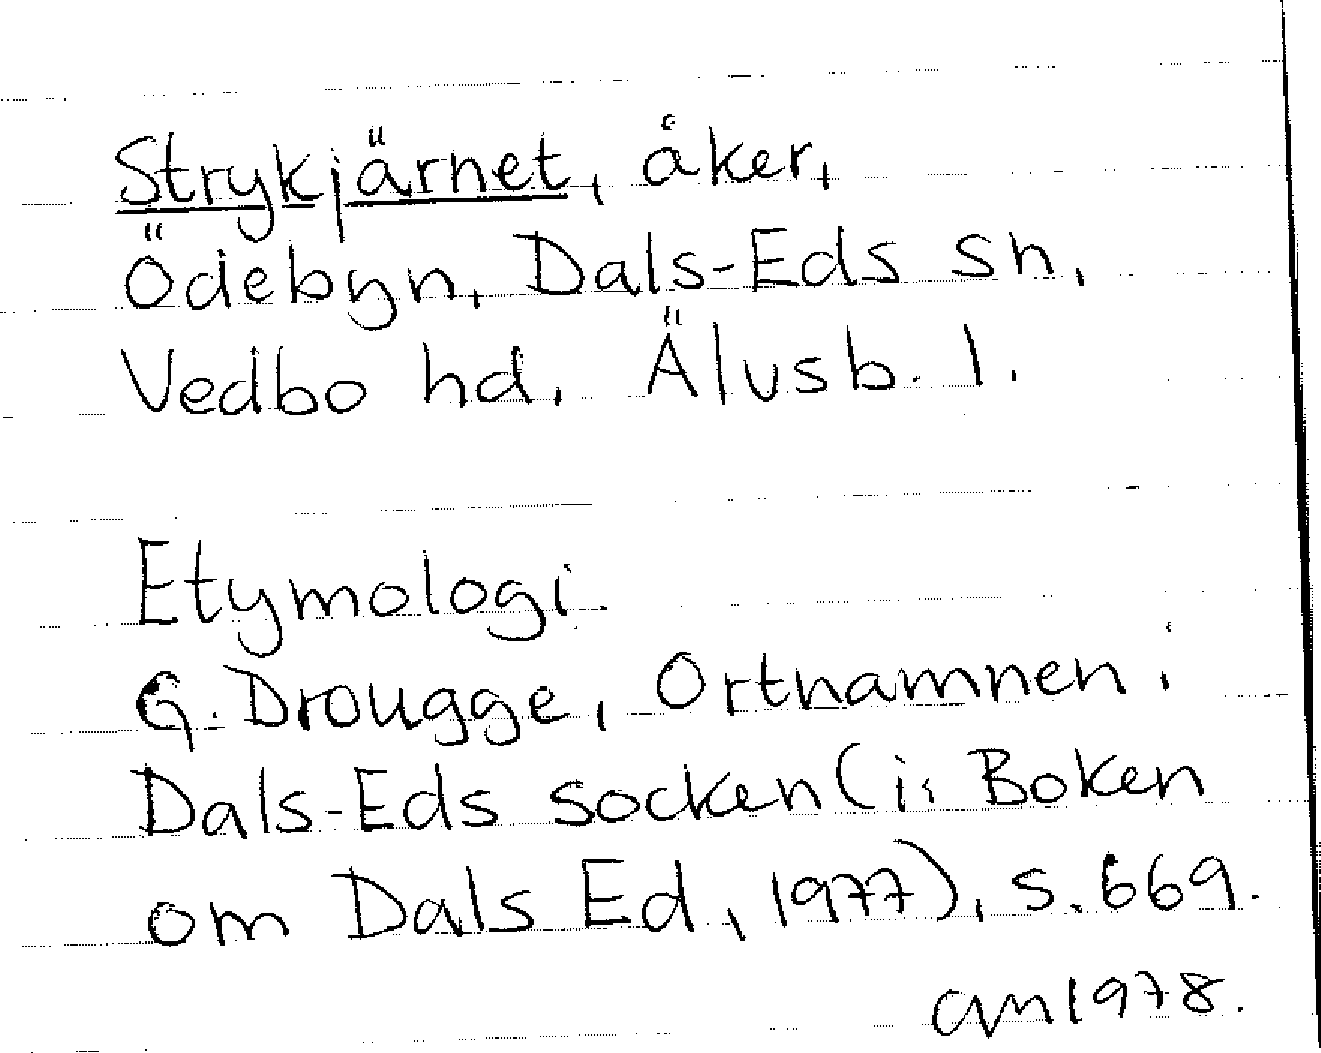 Strykjärnet, åker,
Ödebyn, Dals-Eds sn,
Vedbo hd. Älvsb. l.
Etymologi.
G. Drougge, Ortnamnen i
Dals-Eds socken (i: Boken
om Dals Ed, 1977), s. 669.
1978.